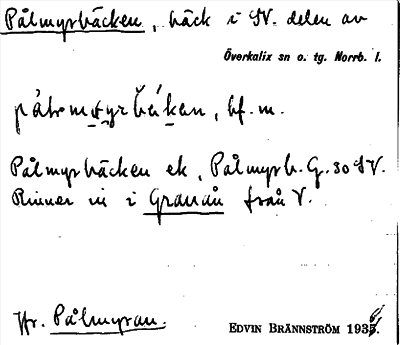 Pålmyrbäcken, bäck i SV. delen av
Överkalix sn o. tg. Norrb. l.
bf. m.
Pålmyrbäcken ek, Pålmyrb. G. 30 SV.
Rinner in i Granån från V.
Jfr. Pålmyran.
EDVIN BRÄNNSTRÖM 193